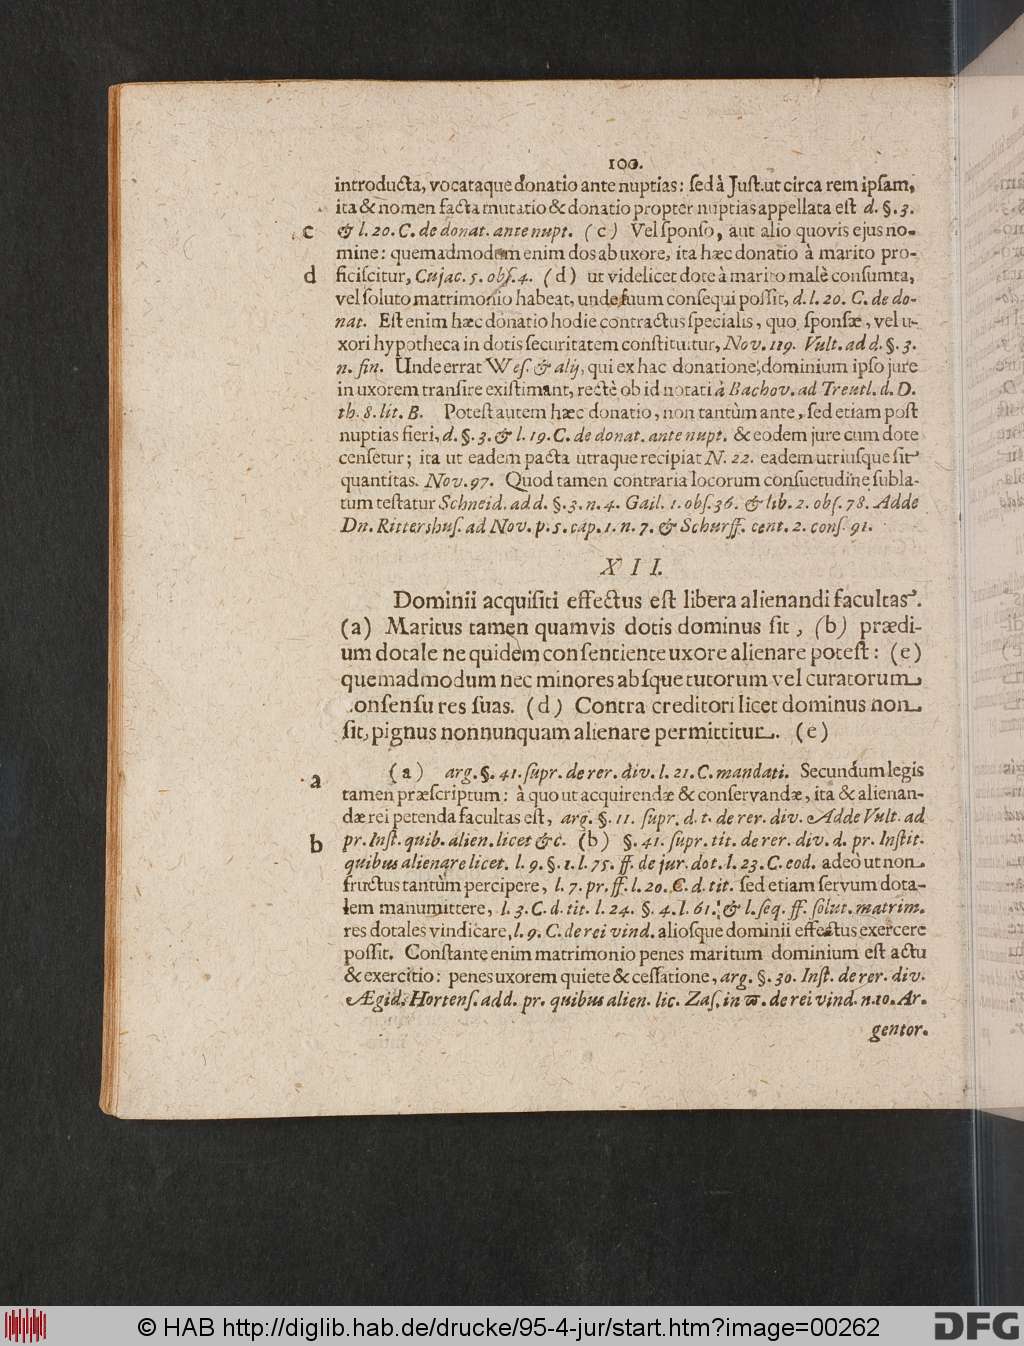 100.
introducta, vocataque donatio ante nuptias: sed à Just. ut circa rem ipsam,
ita & nomen facta mutatio & donatio propter nuptias appellata est d. §. 3.
c & l. 20. C. de donat. ante nupt. (c) Vel sponso, aut alio quovis ejus no-
mine: quemadmodum enim dos ab uxore, ita hæc donatio à marito pro-
d ficiscitur, Cujac. 5. obs. 4. (d) ut videlicet dote à marito malè consumta,
vel soluto matrimonio habeat, unde suum consequi possit, d. l. 20. C. de do-
nat. Est enim hæc donatio hodie contractus specialis, quo sponsæ, vel u-
xori hypotheca in dotis securitatem constituitur, Nov. 119. Vult. ad d. §. 3.
n. fin. Unde errat Wes. & alij, qui ex hac donatione, dominium ipso jure
in uxorem transire existimant, rectè ob id notati à Bachov. ad Treutl. d. D.
th. 8. lit. B. Potest autem hæc donatio, non tantùm ante, sed etiam post
nuptias fieri, d. §. 3. & l. 19. C. de donat. ante nupt. & eodem jure cum dote
censetur; ita ut eadem pacta utraque recipiat N. 22. eadem utriusque sit
quantitas. Nov. 97. Quod tamen contraria locorum consuetudine subla-
tum testatur Schneid. ad d. §. 3. n. 4. Gail. 1. obs. 36. & lib. 2. obs. 78. Adde
Dn. Rittershus. ad Nov. p. 5. cap. 1. n. 7. & Schurff. cent. 2. cons. 91.
XII.
Dominii acquisiti effectus est libera alienandi facultas.
(a) Maritus tamen quamvis dotis dominus sit, (b) prædi-
um dotale ne quidem consentiente uxore alienare potest: (e)
quemadmodum nec minores absque tutorum vel curatorum
onsensu res suas. (d) Contra creditori licet dominus non
sit, pignus nonnunquam alienare permittitur. (e)
a (a) arg. §. 41. supr. de rer. div. l. 21. C. mandati. Secundum legis
tamen præscriptum: à quo ut acquirendæ & conservandæ, ita & alienan-
dæ rei petenda facultas est, arg. §. 11. supr. d. t. de rer. div. Adde Vult. ad
b pr. Inst. quib. alien. licet &c. (b) §. 41. supr. tit. de rer. div. d. pr. Instit.
quibus alienare licet. l. 9. §. 1. l. 75. ff. de jur. dot. l. 23. C. eod. adeò ut non
fructus tantùm percipere, l. 7. pr. ff. l. 20. C. d. tit. sed etiam servum dota-
lem manumittere, l. 3. C. d. tit. l. 24. §. 4. l. 61. & l. seq. ff. solut. matrim.
res dotales vindicare, l. 9. C. de rei vind. aliosque dominii effectus exercere
possit. Constante enim matrimonio penes maritum dominium est actu
& exercitio: penes uxorem quiete & cessatione, arg. §. 30. Inst. de rer. div.
Ægid. Hortens. ad d. pr. quibus alien. lic. Zas. in ϖ. de rei vind. n. 10. Ar-
gentor.
© HAB http://diglib.hab.de/drucke/95-4-jur/start.htm?image=00262
DFG